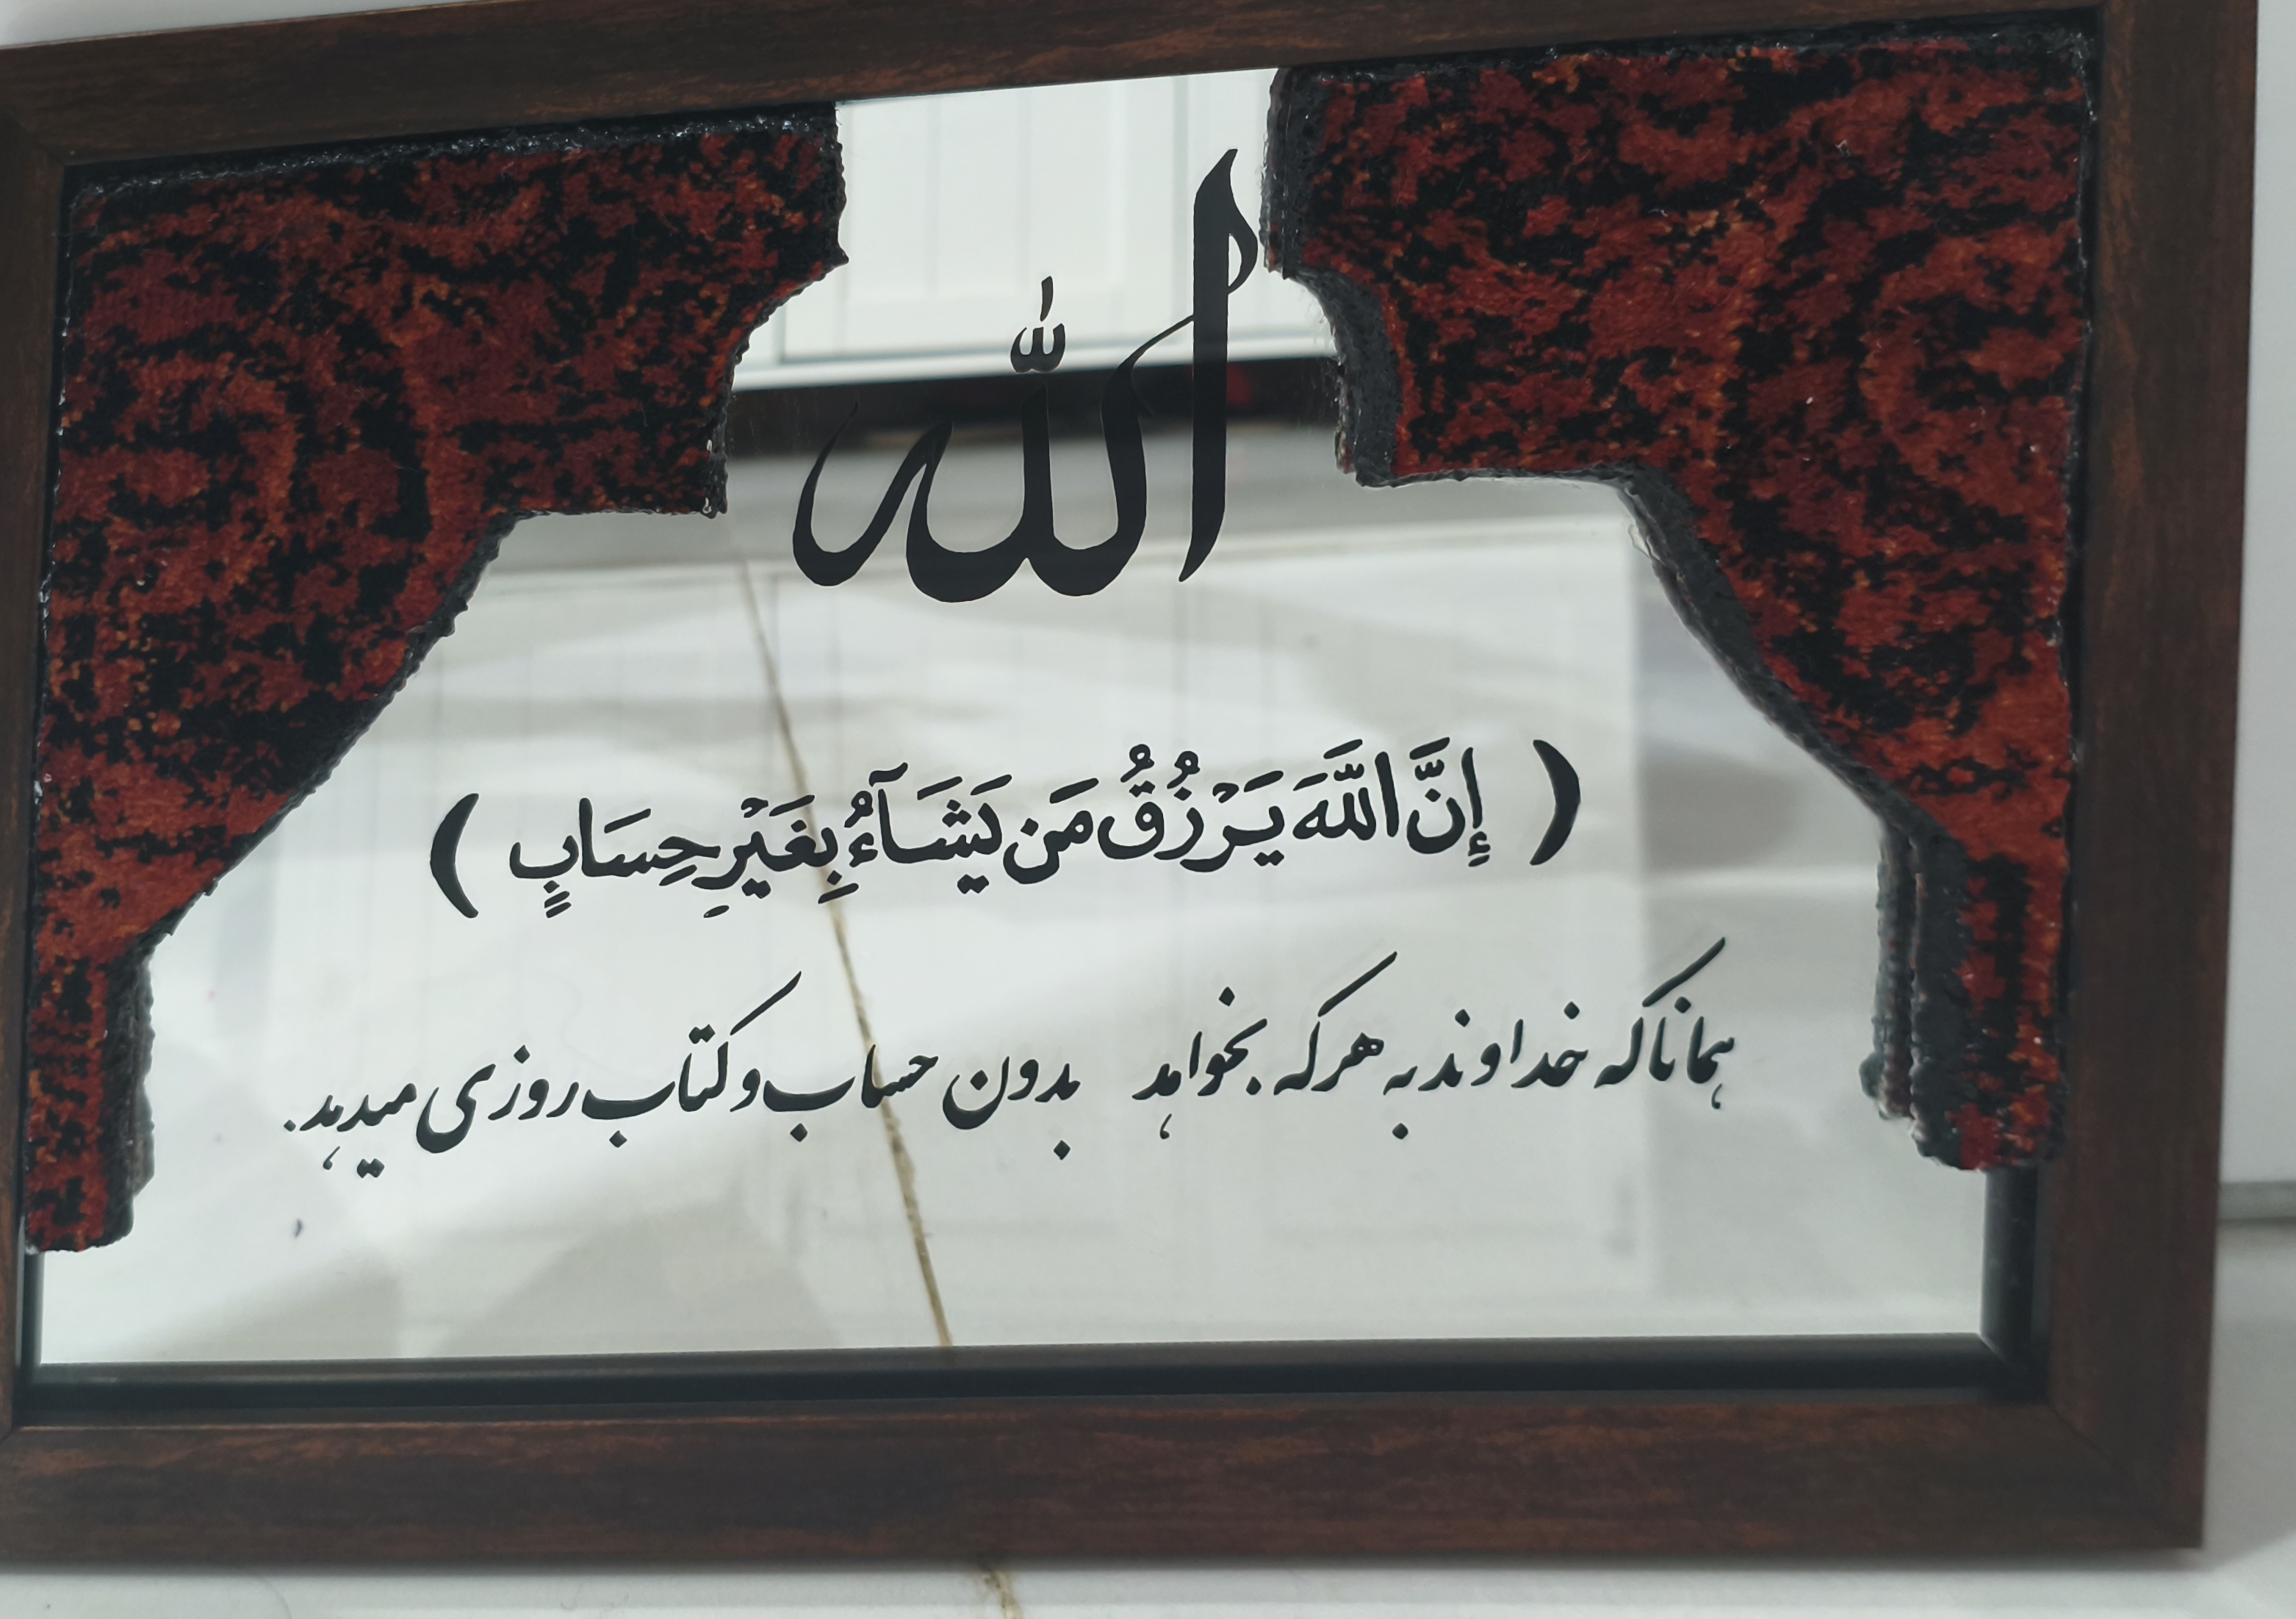 الله
( إِنَّ اللَّهَ يَرْزُقُ مَن يَشَآءُ بِغَيْرِ حِسَابٍ )
همانا که خداوند به هر که بخواهد بدون حساب و کتاب روزی میدهد.